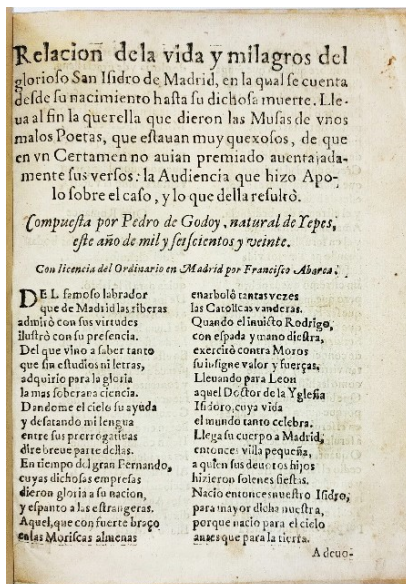 Relacion dela vida y milagros del
glorioso San Isidro de Madrid, en la qual se cuenta
desde su nacimiento hasta su dichosa muerte. Lle-
ua al fin la querella que dieron las Musas de vnos
malos Poetas, que estauan muy quexosos, de que
en vn Certamen no auian premiado auentajada-
mente sus versos: la Audiencia que hizo Apo-
lo sobre el caso, y lo que della resultò.
Compuesta por Pedro de Godoy, natural de Yepes,
este año de mil y seiscientos y veinte.
Con licencia del Ordinario en Madrid por Francisco Abarca.
DEL famoso labrador
que de Madrid las riberas
admirò con sus virtudes
ilustrò con su presencia.
Del que vino a saber tanto
que sin estudios ni letras,
adquirio para la gloria
la mas soberana ciencia.
Dandome el cielo su ayuda
y desatando mi lengua
entre sus prerrogatiuas
dire breue parte dellas.
En tiempo del gran Fernando,
cuyas dichosas empresas
dieron gloria a su nacion,
y espanto a las estrangeras.
Aquel, que con fuerte braço
en las Moriscas almenas
enarbolô tantas vezes
las Catolicas vanderas.
Quando el inuicto Rodrigo,
con espada y mano diestra,
exercitò contra Moros
su insigne valor y fuerças,
Lleuando para Leon
aquel Doctor de la Yglesia
Isidoro, cuya vida
el mundo tanto celebra.
Llega su cuerpo a Madrid,
entonces villa pequeña,
a quien sus deuotos hijos
hizieron solenes fiestas.
Nacio entonces nuestro Isidro,
para mayor dicha nuestra,
porque nacio para el cielo
antes que para la tierra.
A deuo-